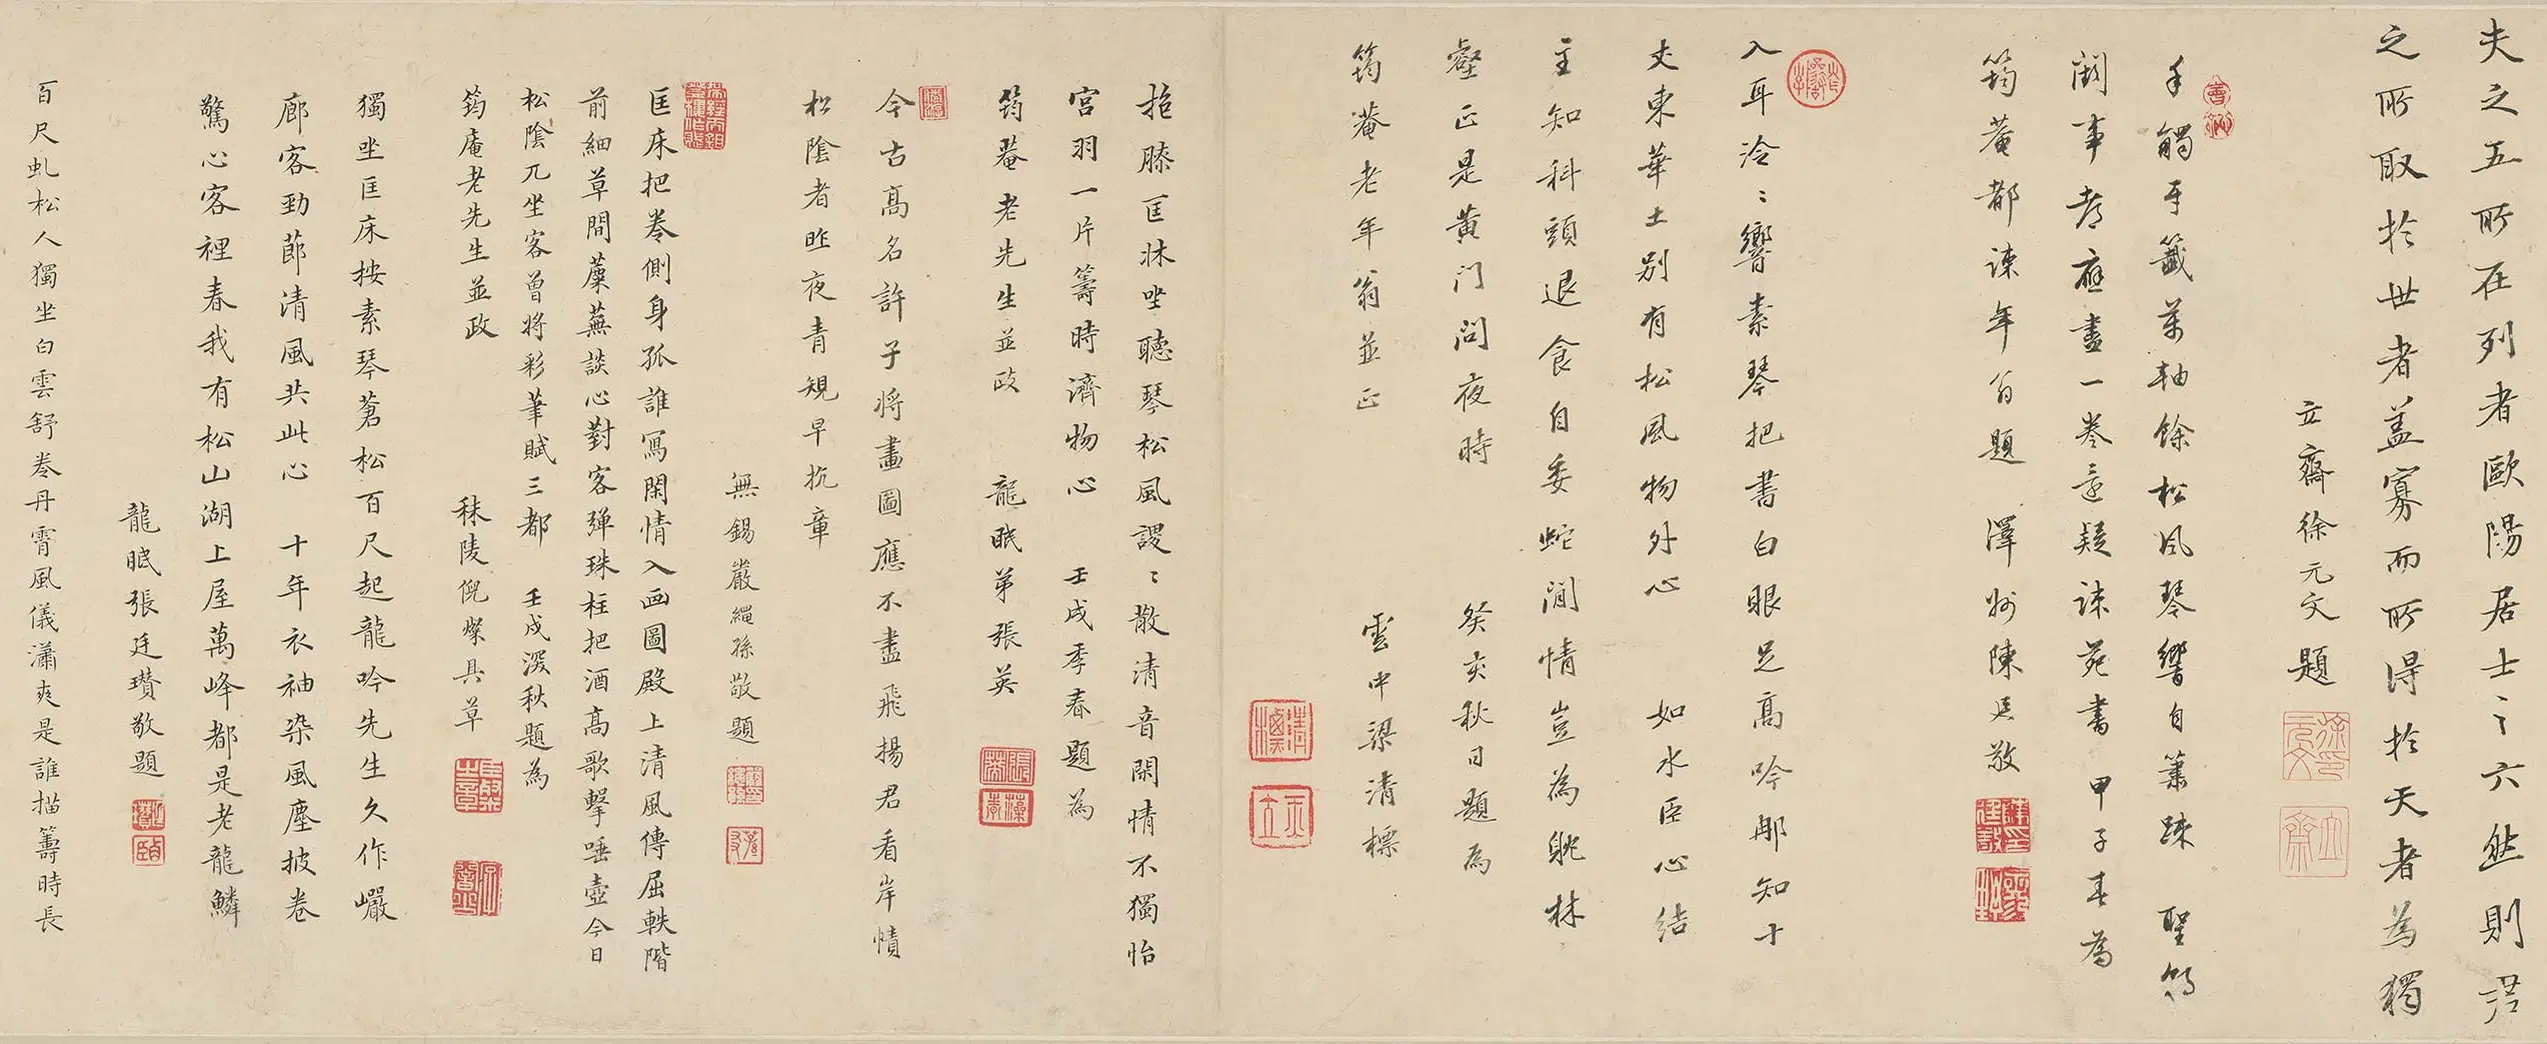 夫之五所在列者歐陽居士之六然則君
之所取於世者蓋寡而所得於天者為獨
立齋徐元文題
手觸牙籤萬軸餘松風琴響自蕭疎
聖朝
闕事者應盡一卷還疑諫苑書 甲子春為
筠菴都諫年翁題 澤州陳廷敬
入耳泠〻響素琴把書白眼足高吟那知十
丈東華土別有松風物外心 如水臣心結
主知科頭退食自委蛇閒情豈為耽林
壑正是黃门問夜時 癸亥秋日題為
筠菴老年翁並正 雲中梁清標
抱膝匡牀坐聽琴松風謖〻散清音閑情不獨怡
宮羽一片籌時濟物心 壬戌季春題為
筠菴老先生並政 龍眠弟張英
今古高名許子將畫圖應不盡飛揚君看岸幘
松陰者昨夜青規早抗章
無錫嚴繩孫敬題
匡床把卷側身孤誰寫閑情入画圖殿上清風傳屈軼階
前細草間蘪蕪談心對客彈珠柱把酒高歌擊唾壺今日
松陰兀坐客曾將彩筆賦三都 壬戌深秋題為
筠庵老先生並政 秣陵倪燦具草
獨坐匡床按素琴蒼松百尺起龍吟先生久作巖
廊客勁莭清風共此心 十年衣袖染風塵披卷
驚心客裡春我有松山湖上屋萬峰都是老龍鱗
龍眠張廷瓚敬題
百尺虬松人獨坐白雲舒卷丹霄風儀瀟爽是誰描籌時長